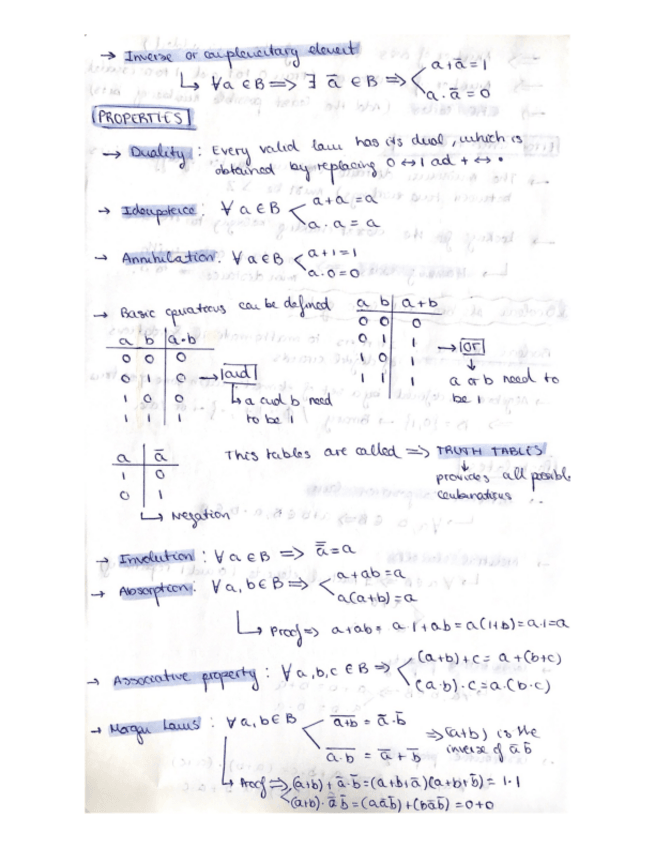 → Inverse or complementary element
↳ ∀a∈B ⟹ ∃ ā ∈B ⟹ < a+ā=1
a·ā=0
PROPERTIES
→ Duality: Every valid law has its dual, which is
obtained by replacing 0↔1 ad +↔·
→ Idempotence: ∀a∈B < a+a=a
a·a=a
→ Annihilation: ∀a∈B < a+1=1
a·0=0
→ Basic operations can be defined
a b a·b
0 0 0
0 1 0 → and
1 0 0 ↳ a and b need
1 1 1 to be 1
a b a+b
0 0 0
0 1 1 → or
1 0 1 ↓
1 1 1 a or b need to
be 1
a ā
1 0
0 1
↳ Negation
This tables are called ⟹ TRUTH TABLES
↓
provides all possible
combinations
→ Involution: ∀a∈B ⟹ a̿=a
→ Absorption: ∀a,b∈B ⟹ < a+ab=a
a(a+b)=a
↳ Proof ⟹ a+ab= a·1+ab=a(1+b)=a·1=a
→ Associative property: ∀a,b,c ∈B ⟹ < (a+b)+c= a+(b+c)
(a·b)·c=a·(b·c)
→ Morgan Laws: ∀a,b∈B < a̅+̅b̅ = ā·b̄
a̅·̅b̅ = ā+b̄
⟹ (a+b) is the
inverse of ā b̄
↳ Proof ⟹ (a+b)+ā·b̄=(a+b+ā)(a+b+b̄)=1·1
(a+b)·ā b̄=(aāb̄)+(bāb̄)=0+0